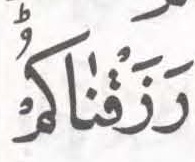 رَزَقْنٰاكُمْؕ